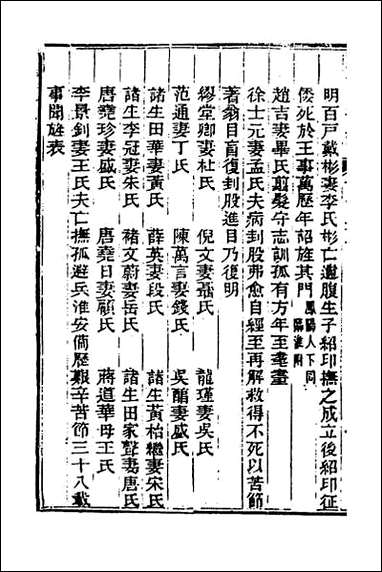 明百戸戴彬妻李氏彬亡遺腹生子紹印撫之成立後紹印征
倭死於王事萬歷年詔旌其門
趙吉妻畢氏剪髮守志訓孤有方年至耄耋
徐士元妻孟氏夫病刲股弗愈自經至再解救得不死以苦節
著翁目盲復刲股進目乃復明
繆堂卿妻杜氏 倪文妻聶氏 龍瑾妻吳氏
范通妻丁氏 陳萬言妻錢氏 吳 妻盛氏
諸生田華妻黃氏 薛英妻段氏 諸生黃 妻宋氏
諸生李冠妻朱氏 褚文蔚妻岳氏 諸生田家聲妻唐氏
唐堯珍妻盛氏 唐堯日妻顧氏 蔣道華母王氏
李景釗妻王氏夫亡撫孤避兵淮安備歷艱辛苦節三十八載
事聞旌表